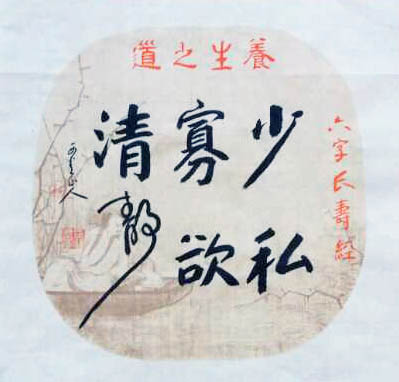 養生之道
六字长壽經
少私
寡欲
清靜
山人